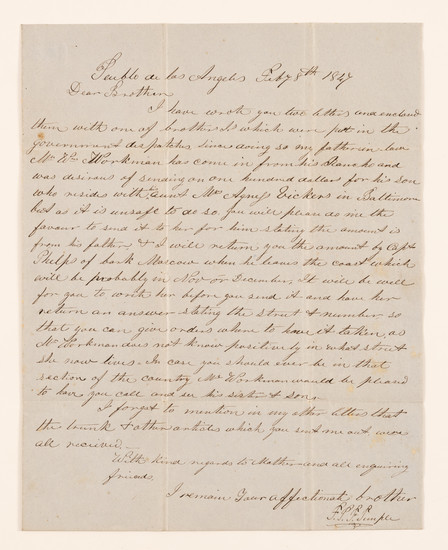 Pueblo de los Angeles Feby 8th 1847
Dear Brother
I have wrote you two letters and enclosed
them with one of brother J's which were put in the
government despatches since doing so my father in law
Mr Wm Workman has come in from his Rancho and
was desirous of sending on one hundred dollars for his son
who resides with Aunt Mrs Agnes Vickers in Baltimore
but as it is unsafe to do so you will please do me the
favour to send it to her for him stating the amount is
from his father, & I will return you the amount by Capt
Phelps of bark Moscow when he leaves the coast which
will be probably in Nov or December. It will be well
for you to write her before you send it and have her
return an answer stating the street & number so
that you can give orders where to have it taken, as
Mr Workman does not know positively in what street
she now lives. In case you should ever be in that
section of the country Mr Workman would be pleased
to have you call and see his sister & son.
I forgot to mention in my other letters that
the trunk & other articles which you sent me out were
all recieved.
With kind regards to Mother and all enquiring
friends
I remain Your affectionate brother
F.P.F. Temple